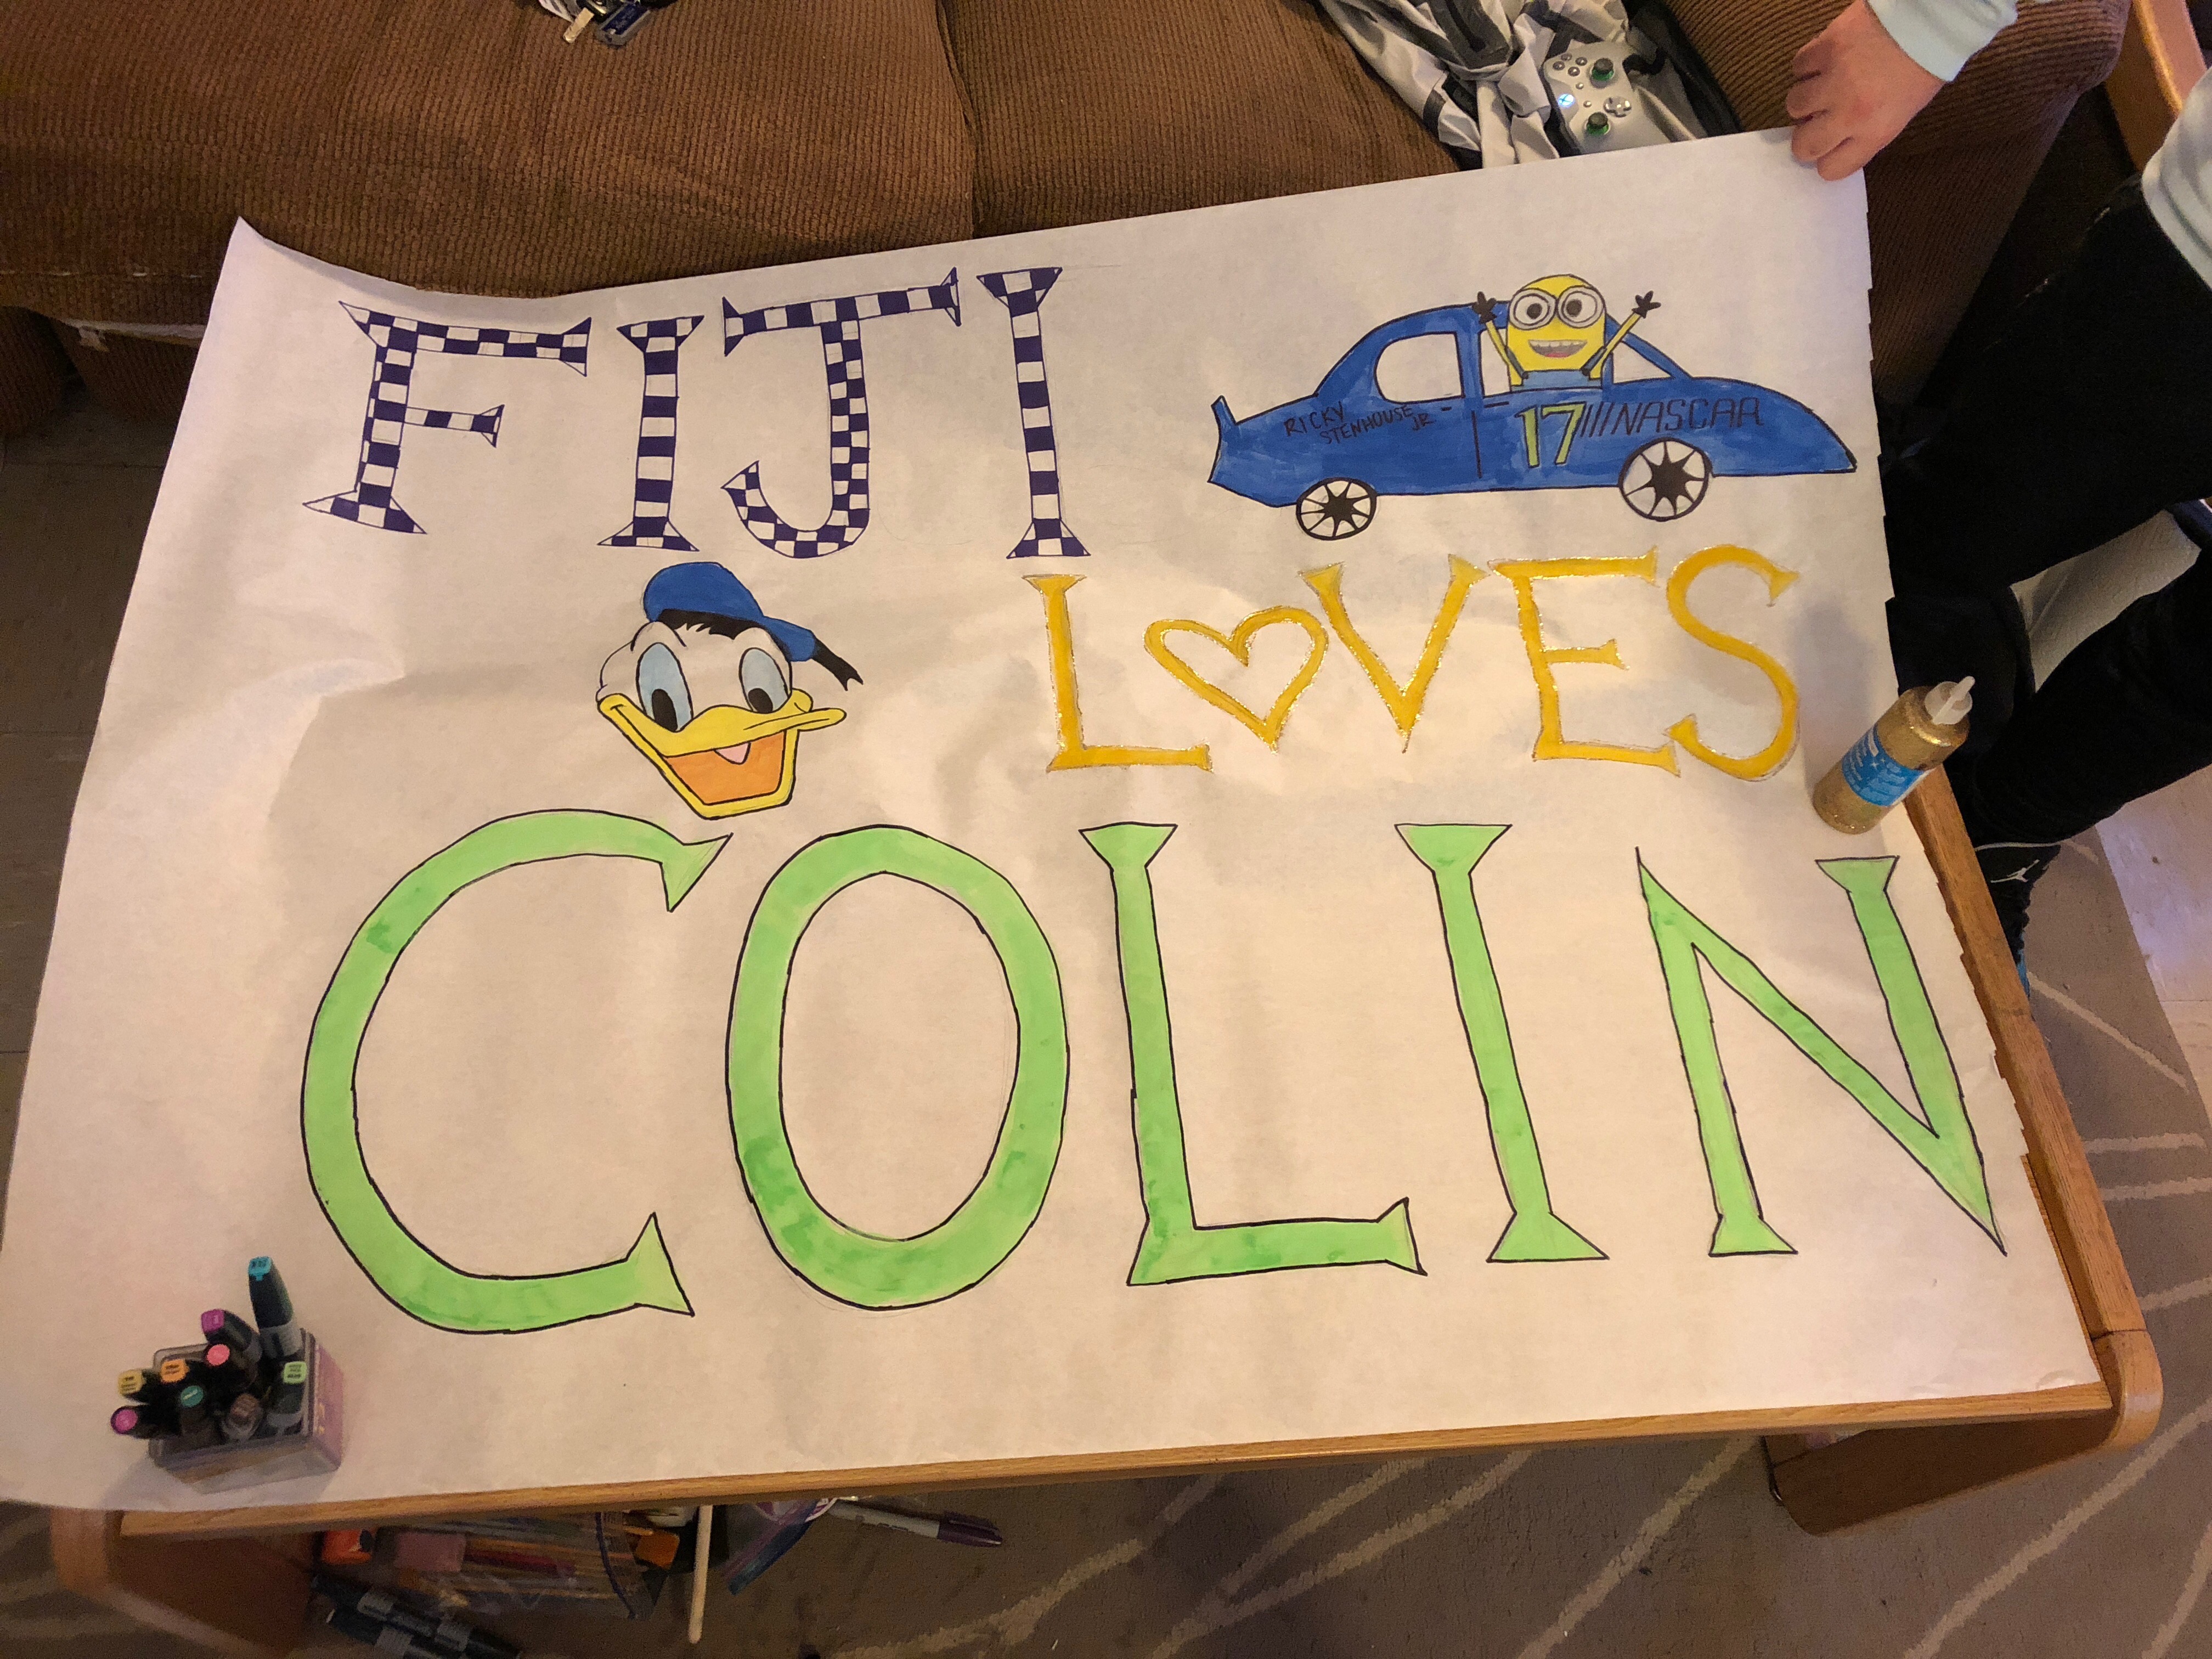 FIJI
RICKY
STENHOUSE JR
17///NASCAR
LOVES
COLIN